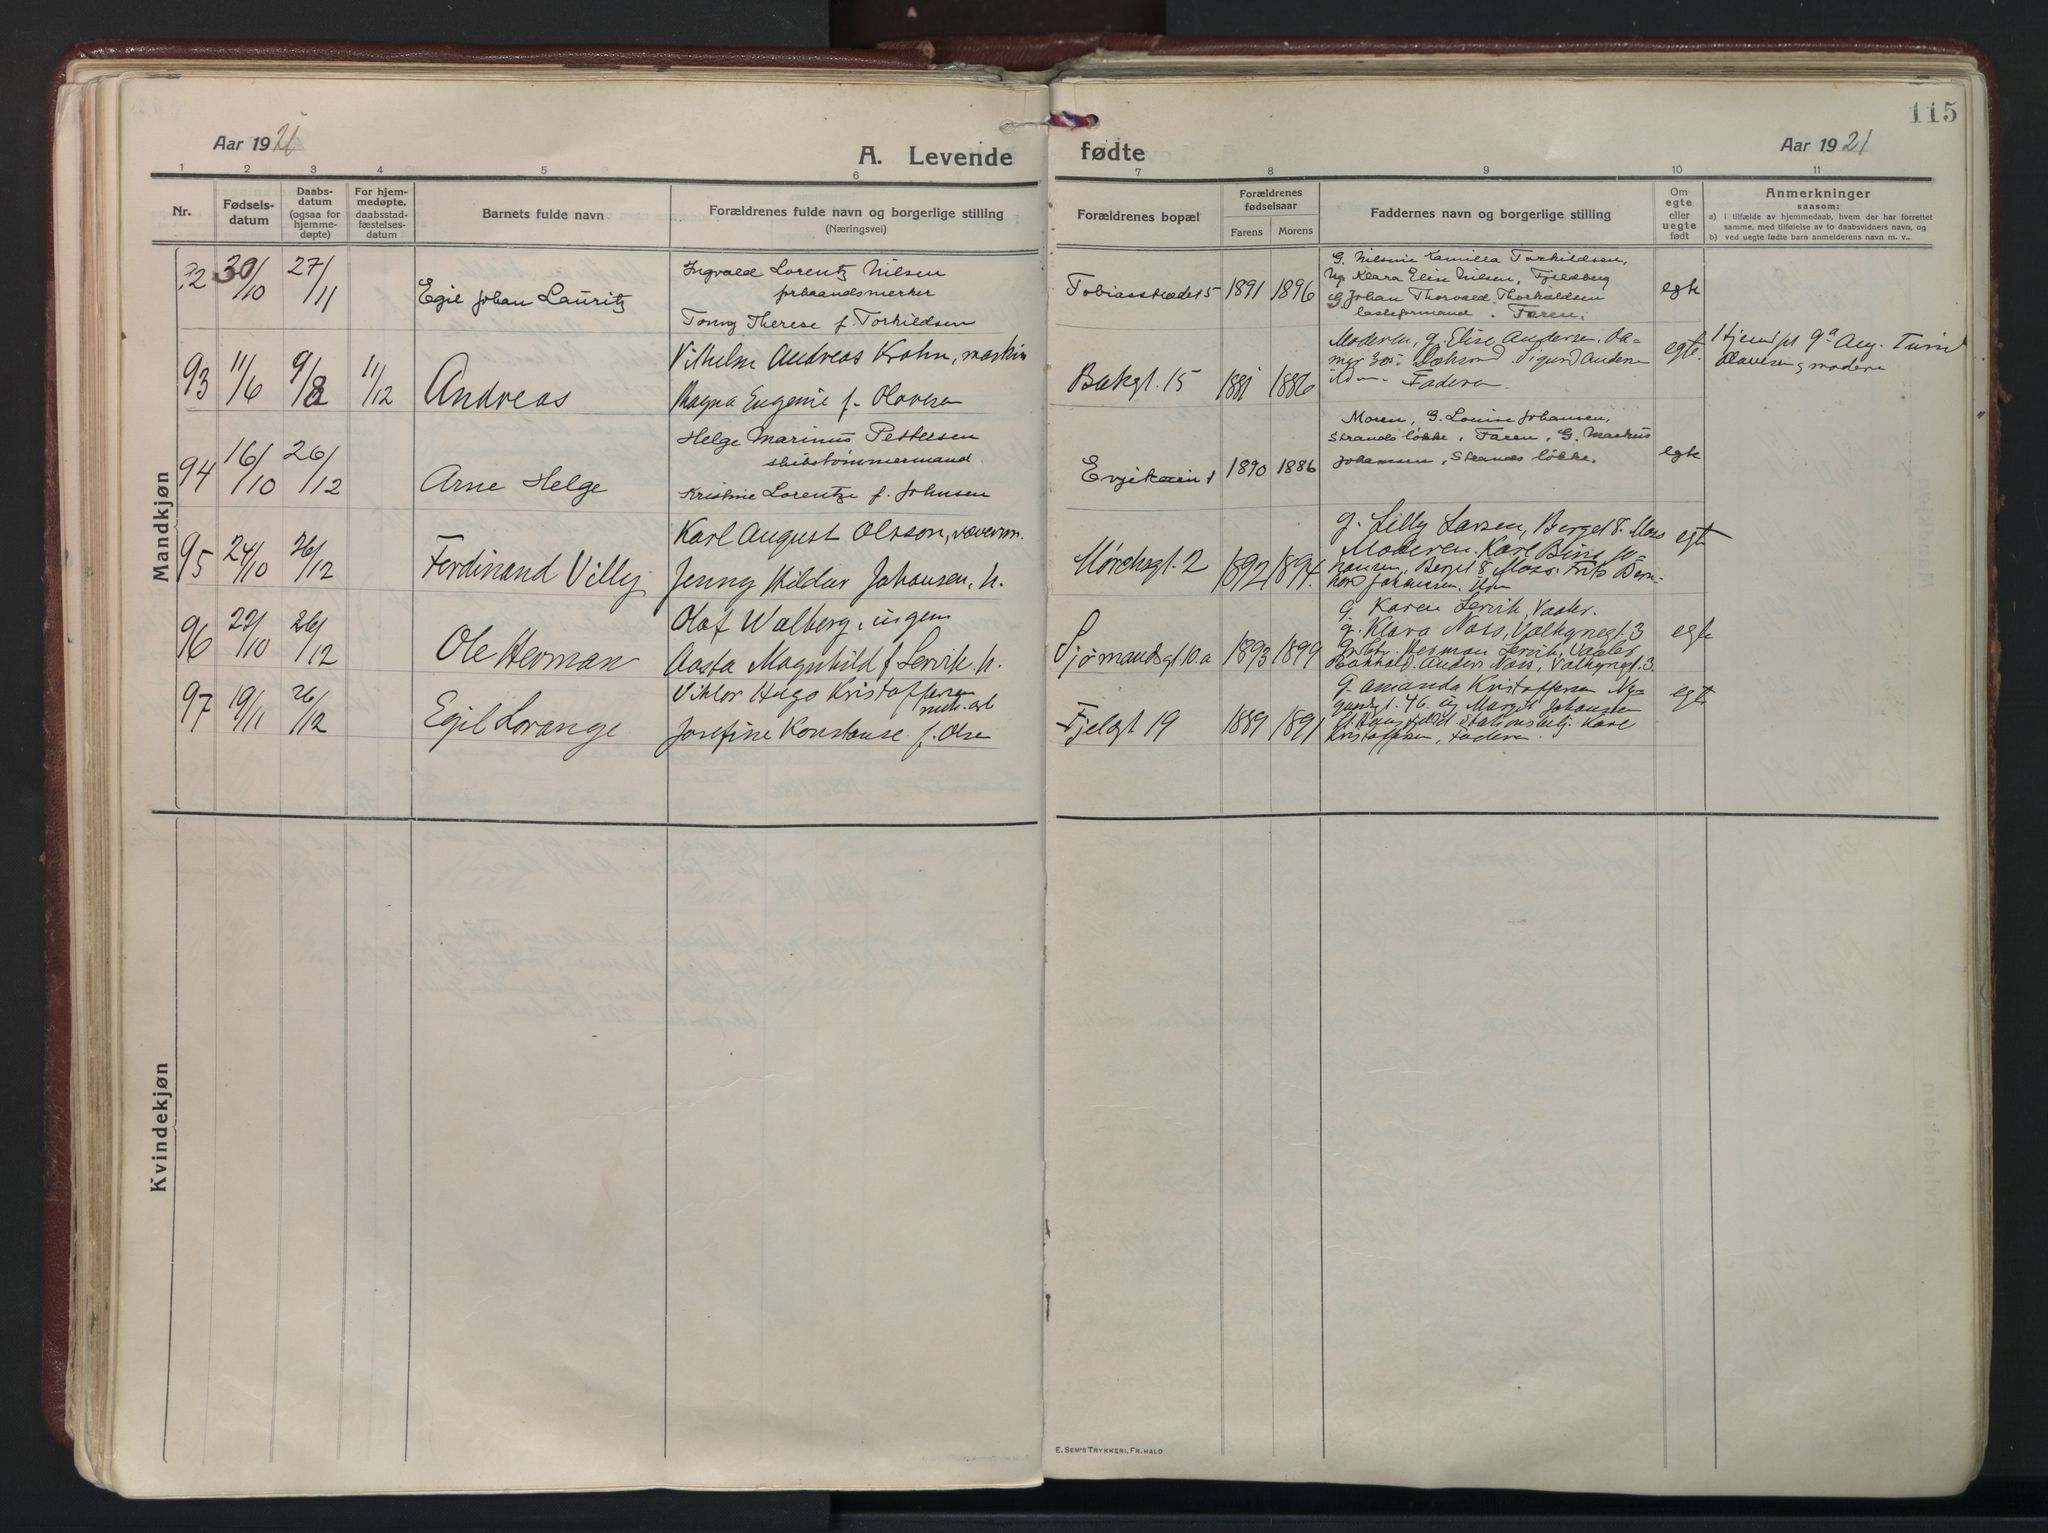 115
Aar 1921
A. Levende
fødte
Aar 1921
1 2 3 4 5 6 7 8 9 10 11
Nr.
Fødsels-
datum
Daabs-
datum
(ogsaa for
hjemme-
døpte)
For hjem-
medøpte,
daabsstad-
fæstelses-
datum
Barnets fulde navn
Forældrenes fulde navn og borgerlige stilling
(Næringsvei)
Forældrenes bopæl
Forældrenes
fødselsaar
Farens Morens
Faddernes navn og borgerlige stilling
Om
egte
eller
uegte
født
Anmerkninger
saasom:
a) i tilfælde av hjemmedaab, hvem der har forrettet
samme, med tilføielse av to daabsvidners navn, og
b) ved uegte fødte barn anmelderens navn m. v..
Mandkjøn
92 30/10 27/11 Egil Johan Lauritz
Ingvald Lorentz Nilsen
Tonny Therese f. Torkildsen
Tobiasstrædet 5 1891 1896
G. Nilsine Kamilla Torkildsen,
Ug Klara Elise Nilsen, Fjeldberg
G Johan Thorvald Thorkildsen
losseformand. Faren.
egte
93 11/6 9/8 11/12 Andreas
Vilhelm Andreas Krohn, maskin
Magna Eugenie f. Olavesen
Bakgt. 15 1881 1886
Moderen, g. Elise Andersen,
Sigurd Anders
Faderen.
egte.
Hjemdpt 9a Aug.
Olavesen, moderen
94 16/10 26/12 Arne Helge
Helge Marinus Pettersen
skibstømmermand.
Kristine Lorentze f. Johnsen
1890 1886
Moren, G. Louise Johansen,
Strands løkke, Faren, G. Markus
Johansen, Strands løkke.
egte
95 24/10 26/12 Ferdinand Villy
Karl August Olsson,
Jenny Hildur Johansen. h.
Mørchsgt. 2 1892 1894.
g. Lilly Larsen, Berget 8. Moss
Moderen. Karl
Berget 8 Moss. Frits Bern-
hard Johansen.
egte
96 27/10 26/12 Ole Herman
Olaf Walberg,
Aasta Magnhild f Lervik. h.
Sjømandsgt. 10.a 1893 1899
g Karen Lervik, Vaaler.
g. Klara Nass, Valkyriegt. 3
Herman Lervik, Vaaler
Anders Nass, Valkyriegt. 3.
egte
97 19/11 26/12 Egil Lorange
Viktor Hugo Kristoffersen
mek. arb
Josefine Konstanse f. Olsen
Fjelgt 19 1889 1891
g. Amanda Kristoffersen Ny-
gaardsgt. 46. ug Margit Johansen
Karl
Kristoffersen, Faderen.
egte
Kvindekjøn
E. Sem's Trykkeri, Fr.hald